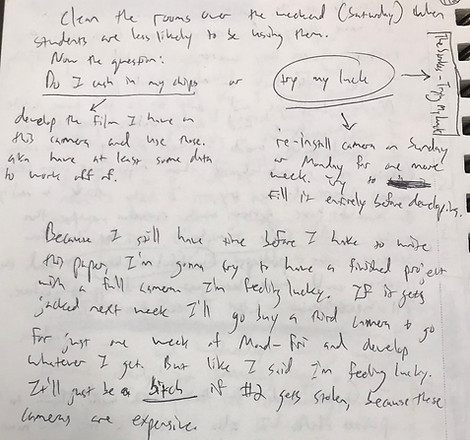 Clean the rooms over the weekend (Saturday) when
students are less likely to be using them.
Now the question:
Do I cash in my chips or try my luck
develop the film I have on
this camera and use those.
aka have at least some data
to work off of.
re-install camera on Sunday
or Monday for one more
week. Try to
fill it entirely before developing.
Because I still have time before I have to write
this paper, I'm gonna try to have a finished project
with a full camera. I'm feeling lucky. If it gets
jacked next week I'll go buy a third camera to go
for just one week of Mond-Fri and develop
whatever I get. But like I said I'm feeling lucky.
It'll just be a bitch if #2 gets stolen, because these
cameras are expensive.